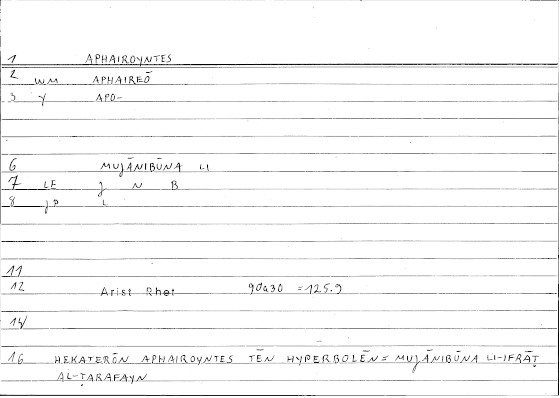 1 APHAIROYNTES
2 WM APHAIREŌ
3 Y APO-
6 MUJĀNIBŪNA LI
7 LE J N B
8 JP L
11
12 Arist Rhet 90a30 =125.9
14
16 HEKATERŌN APHAIROYNTES TĒN HYPERBOLĒN= MUJĀNIBŪNA LI-IFRĀṬ
AL-ṬARAFAYN